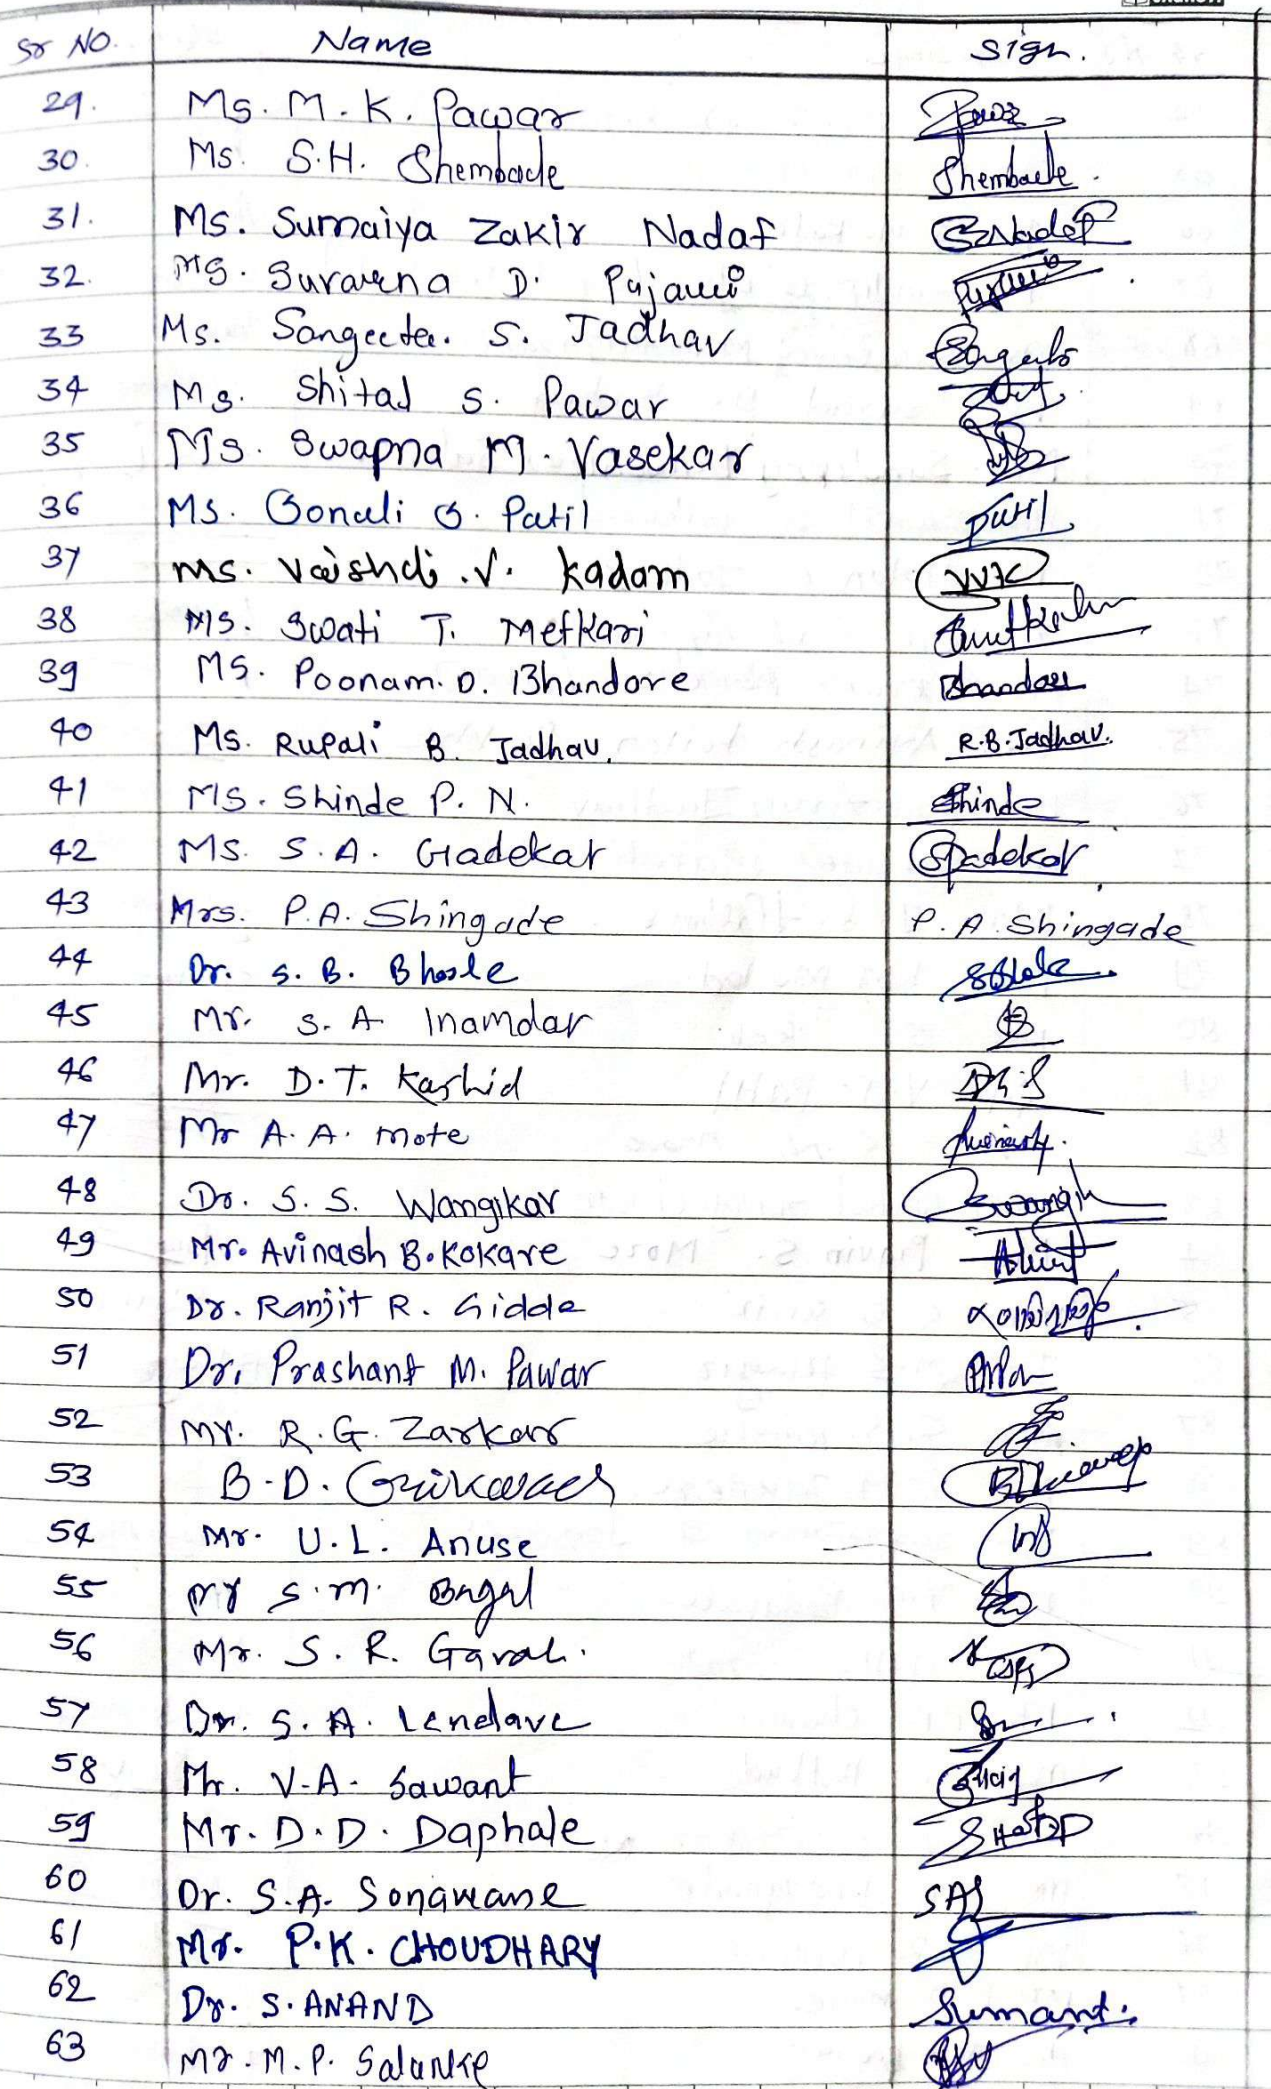 Sr NO. Name Sign.
29. Ms. M. K. Pawar
30. Ms. S.H. Shembade Shembade.
31. Ms. Sumaiya Zakir Nadaf SZNadaf
32. Ms. Suvarna D. Pujari
33 Ms. Sangeeta. S. Jadhav Sangeeta
34 Ms. Shital S. Pawar
35 Ms. Swapna M. Vasekar
36 Ms. Sonali S. Patil Patil
37 Ms. Vaishali .V. Kadam VVK
38 Ms. Swati T. Metkari
39 Ms. Poonam. D. Bhandore Bhandore
40 Ms. Rupali B. Jadhav. R.B.Jadhav.
41 Ms. Shinde P. N. Shinde
42 Ms. S.A. Gadekar Gadekar
43 Mrs. P.A. Shingade P. A. Shingade
44 Dr. S. B. Bhosle
45 Mr. S. A Inamdar
46 Mr. D. T. Kashid
47 Mr A. A. Mote
48 Dr. S. S. Wangikar
49 Mr. Avinash B. Kokare
50 Dr. Ranjit R. Gidde
51 Dr. Prashant M. Pawar
52 Mr. R. G. Zarkar
53 B. D. Gaikawad
54 Mr. U. L. Anuse
55 Mr S. M. Bagal
56 Mr. S. R. Gavali.
57 Dr. S. A. Lendave
58 Mr. V. A. Sawant
59 Mr. D. D. Daphale
60 Dr. S.A. Sonawane SAS
61 Mr. P.K. CHOUDHARY
62 Dr. S. ANAND Sumant.
63 Mr. M. P. Salunke